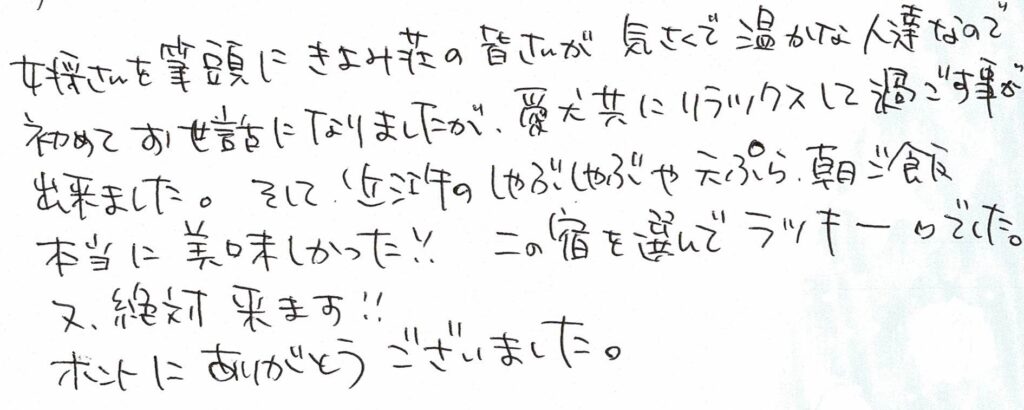 女将さんを筆頭にきよみ荘の皆さんが気さくで温かな人達なので
初めてお世話になりましたが、愛犬共にリラックスして過ごす事が
出来ました。そして、近江牛のしゃぶしゃぶや天ぷら、朝ご飯
本当に美味しかった!! この宿を選んでラッキーでした。
又、絶対来ます!!
ホントにありがとうございました。